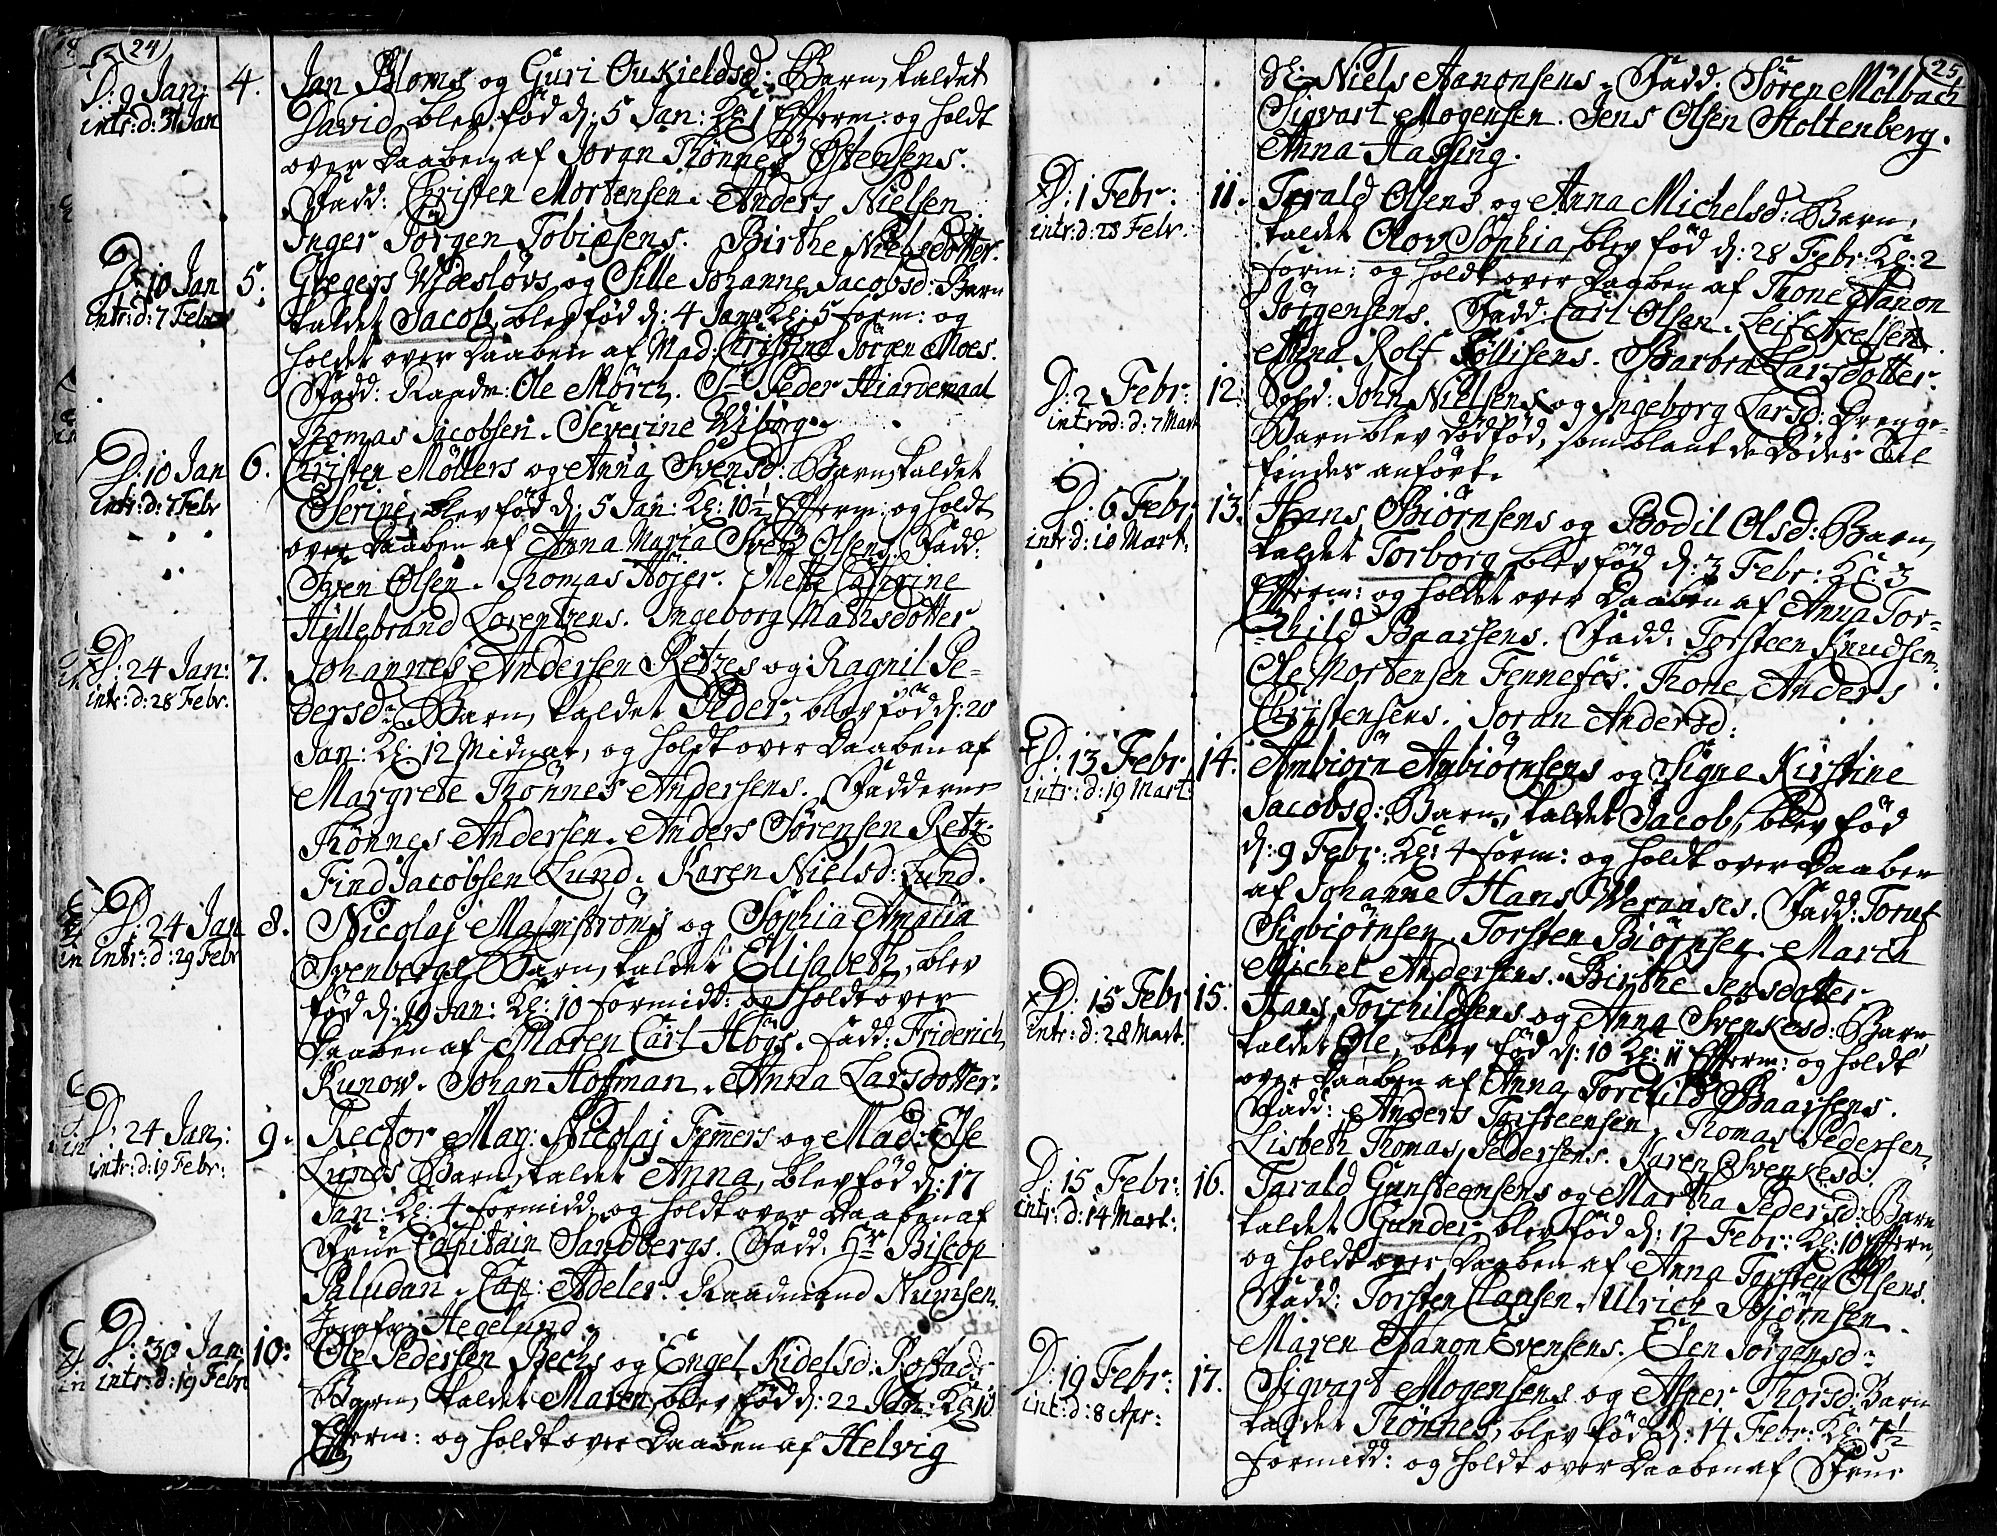 24
D: 9 Jan: 4. Jan Bloms og Guri Oukieldsd: Barn, kaldet
intr: d: 31 Jan David, blev fød d: 5 Jan: Kl: 1 Efterm: og holdt
over Daaben af Joran Thønnes Østensens.
Fadd: Christen Mortensen. Anders Nielsen
Inger Jørgen Tobiæsens. Birthe Nielsdotter.
D: 10 Jan 5. Gregers Widsløvs og Sille Johanne Jacobsd: Barn
intr: d: 7 Febr kaldet Jacob, blev fød d: 4 Jan: Kl: 5 form: og
holdet over Daaben af Mad: Christine Jørgen Moes.
Fadd: Raadm: Ole Mørch. Sr Peder Hiardemaal
Thomas Jacobsen. Severine Wiborg.
D: 10 Jan 6. Christen Møllers og Anna Svensd: Barn, kaldet
intr: d: 7 Febr Serine, blev fød d: 5 Jan: Kl: 10½ Efterm: og holdt
over Daaben af Anna Maria Sven Olsens. Fadd:
Sven Olsen. Thomas Højer. Mette Cathrine
Hillebrand Lorentzens. Ingeborg Mathsdotter.
D: 24 Jan: 7. Johannes Andersen Retzes og Ragnil Pe-
intr: d: 28 Febr. dersd: Barn, kaldet Peder, blev fød d: 20
Jan: Kl: 12 Midnat, og holdt over Daaben af
Margrete Thønnes Andersens. Fadderne
Thønnes Andersen. Anders Sørensen Retz.
Find Jacobsen Lund. Karen Nielsd: Lund.
D: 24 Jan 8. Nicolaj Malmstrøms og Sophia Amalia
intr: d: 29 Febr Svenbergs Barn, kaldet Elisabeth, blev
fød d: 19 Jan: Kl: 10 formidd: og holdt over
Daaben af Maren Carl Høgs. Fadd: Friderich
Kunow. Johan Hoffman. Anna Larsdotter.
D: 24 Jan: 9. Rector Mag: Nicolaj Femmers og Mad: Else
intr: d: 19 Febr: Lunds Barn, kaldet Anna, blev fød d: 17
Jan: Kl: 4 formidd: og holdt over Daaben af
Frue Capitain Sandbergs. Fadd: Hr Biscop
Paludan. Cap: Adeler. Raadmand Numsen.
Jomfr: Hegelund.
D: 30 Jan: 10. Ole Pedersen Bechs og Engel Kidelsd: Rostads
intr: d: 19 Febr Barn, kaldet Maren, blev fød d: 22 Jan: Kl: 10
Efterm: og holdt over Daaben af Helvig
25
Niels Aanonsens. Fadd: Søren Mølbach
Sigvart Mogensen. Jens Olsen Stoltenberg.
Anna Hassing.
D: 1 Febr: 11. Tarald Olsens og Anna Michelsd: Barn,
intr: d: 28 Febr. kaldet Olov Sophia, blev fød d: 28 Febr: Kl: 2
form: og holdt over Daaben af Thone Aanon
Jørgensens. Fadd: Carl Olsen. Leif Axelsen.
Anna Rolf Tøllisens. Barbra Larsdotter.
D: 2 Febr: 12. Sold: John Nielsens og Ingeborg Larsd: Drenge-
introd: d: 7 Mart Barn blev dødfød, som blant de Dødes Tal
findes anført.
D: 6 Febr: 13. Hans Biørnsens og Bodil Olsd: Barn,
intr: d: 10 Mart: kaldet Torborg, blev fød d: 3 Febr: Kl: 3
Efterm: og holdet over Daaben af Anna Tor-
child Baarsens. Fadd: Torsteen Knudsen.
Ole Mortensen Fennefos. Thone Anders
Christensens. Joran Andersd:
D: 13 Febr 14. Ambiørn Anbiørnsens og Signe Kirstine
intr: d: 19 Mart: Jacobsd: Barn, kaldet Jacob, blev fød
d: 9 Febr: Kl: 4 form: og holdt over Daaben
af Johanne Hans Wernases. Fadd: Toruf
Sigbiørnsen. Torsten Biørnsen. Maria
Michel Andersens. Birthe Jensdotter.
D: 15 Febr 15. Hans Torchildsens og Anna Svenkesd: Barn
intr: d: 28 Mart. kaldet Ole, blev fød d: 10 Kl: 11 Efterm: og holdt
over Daaben af Anna Torchild Baarsens.
Fadd: Anders Torsteensen. Thomas Pedersen.
Lisbeth Thomas Pedersens. Karen Svenkesd:
D: 15 Febr: 16. Tarald Gunsteensens og Martha Pedersd: Barn
intr: d: 14 Mart: kaldet Gunder, blev fød d: 12 Febr: Kl: 10 Efterm,
og holdt over Daaben af Anna Torsten Olsens.
Fadd: Torsten Clausen. Ulrich Biørnsen.
Maren Aanon Evensens. Elen Jørgensd:
D: 19 Febr: 17. Sigvart Mogensens og Asper Thorsd: Barn
int: d: 8 Apr: kaldet Thønnes, blev fød d: 14 Febr: Kl: 7½
formidd: og holdt over Daaben af Frue